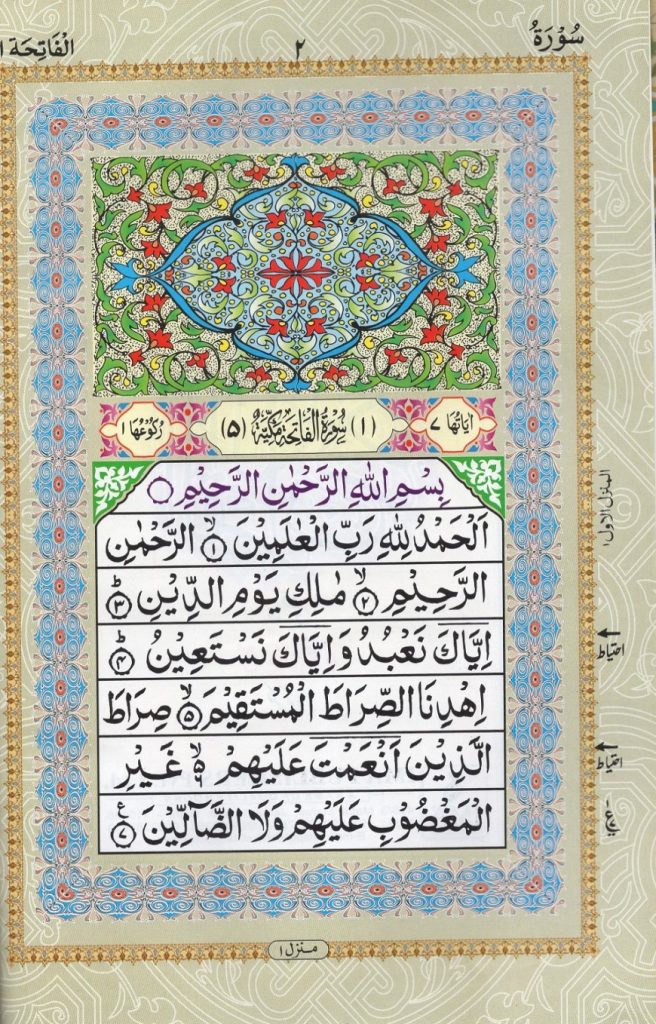 سُوْرَةُ
٢
الْفَاتِحَة ١
اٰيَاتُهَا ٧
(١) سُوْرَةُ الْفَاتِحَةِ مَكِّيَّةٌ (٥)
رُكُوْعُهَا ١
بِسْمِ اللّٰهِ الرَّحْمٰنِ الرَّحِيْمِ ۝
اَلْحَمْدُ لِلّٰهِ رَبِّ الْعٰلَمِيْنَ ۙ﴿١﴾ الرَّحْمٰنِ
الرَّحِيْمِ ۙ﴿٢﴾ مٰلِكِ يَوْمِ الدِّيْنِ ؕ﴿٣﴾
اِيَّاكَ نَعْبُدُ وَ اِيَّاكَ نَسْتَعِيْنُ ؕ﴿٤﴾
اِهْدِنَا الصِّرَاطَ الْمُسْتَقِيْمَ ۙ﴿٥﴾ صِرَاطَ
الَّذِيْنَ اَنْعَمْتَ عَلَيْهِمْ ۙ﴿٦﴾ غَيْرِ
الْمَغْضُوْبِ عَلَيْهِمْ وَلَا الضَّآلِّيْنَ ﴿٧﴾ ع
المنزل الاول ١
احتياط
احتياط
منزل ١